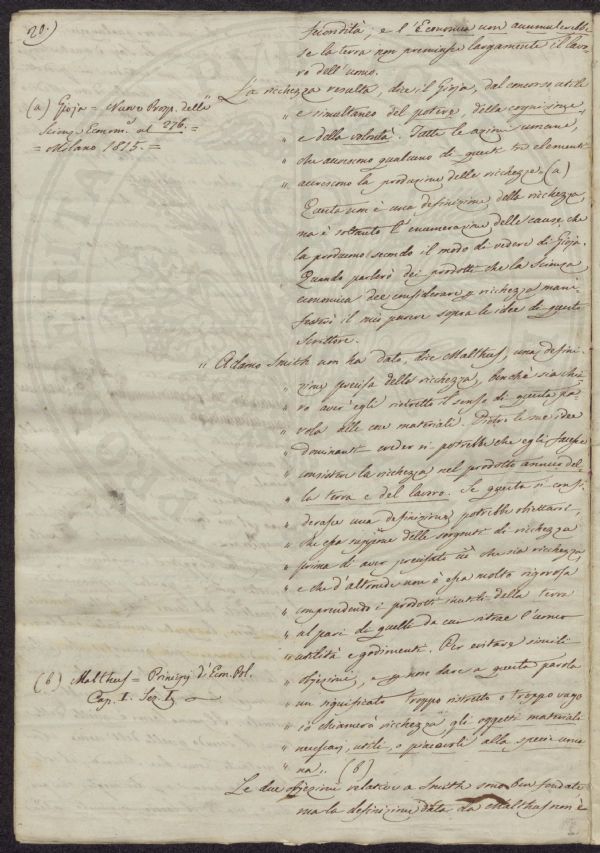 20.)
fecondità, e l'Economia non accumulerebbe
se la terra non premiasse largamente il lavo-
ro dell'uomo.
La ricchezza resulta, dice il Gioja, dal concorso utile
(a) Gioja = Nuovo Prosp. delle
Scienze Econom. al 276. =
= Milano 1815. =
" e simultaneo del potere, della cognizione,
" e della volontà. Tutte le azioni umane,
" che accrescono qualcuno di questi tre elementi
" accrescono la produzione delle ricchezze. (a)
Questa non è una definizione della ricchezza,
ma è soltanto l'enumerazione delle cause che
la producono secondo il modo di vedere di Gioja.
Quando parlerò dei prodotti che la Scienza
economica dee considerare p ricchezza mani-
festerò il mio parere sopra le idee di questo
Scrittore.
" Adamo Smith non ha dato, dice Malthus, una defini-
" zione precisa della ricchezza, benchè sia chia-
" ro aver egli ristretto il senso di questa pa-
" rola alle cose materiali. Dietro le sue idee
" dominanti creder si potrebbe che egli facesse
" consistere la ricchezza nel prodotto annuo del-
" la terra e del lavoro. Se questa si consi-
" derasse una definizione potrebbe obiettarsi,
" che essa suppone delle sorgenti di ricchezza
" prima di aver precisato ciò che sia ricchezza,
" e che d'altronde non è essa molto rigorosa
" comprendendo i prodotti inutili della terra
" al pari di quelli da cui ritrae l'uomo
" utilità e godimenti. Per evitare simili
(b) Malthus = Principj d'Econ. Pol.
Cap. I. Sez. I.
" obiezioni, e p non dare a questa parola
" un significato troppo ristretto o troppo vago
" io chiamerò ricchezza, gli oggetti materiali
" necessarj, utili, o piacevoli alla specie uma-
" na. (b)
Le due obiezioni relative a Smith sono ben fondate
ma la definizione data da Malthus non è